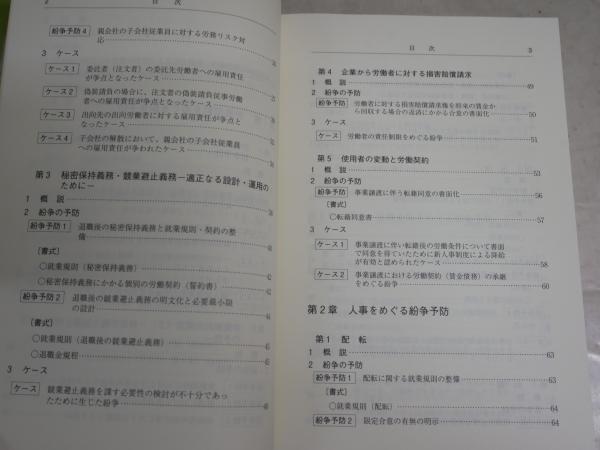 2　目　次
紛争予防4　親会社の子会社従業員に対する労務リスク対
応
3　ケース
ケース1　委託者（注文者）の委託先労働者への雇用責任
が争点となったケース
ケース2　偽装請負の場合に、注文者の偽装請負従事労働
者への雇用責任が争点となったケース
ケース3　出向先の出向労働者に対する雇用責任が争点と
なったケース
ケース4　子会社の解散において、親会社の子会社従業員
への雇用責任が争われたケース
第3　秘密保持義務・競業避止義務－適正なる設計・運用の
ために－
1　概　説
2　紛争の予防
紛争予防1　退職後の秘密保持義務と就業規則・契約の整
備
〔書式〕
○就業規則（秘密保持義務）
○秘密保持義務にかかる個別の労働契約（誓約書）
紛争予防2　退職後の競業避止義務の明文化と必要最小限
の設計
〔書式〕
○就業規則（退職後の競業避止義務）
○退職金規程
3　ケース
ケース　競業避止義務を課す必要性の検討が不十分であっ
たために生じた紛争
目　次　3
第4　企業から労働者に対する損害賠償請求
1　概　説 49
2　紛争の予防
紛争予防　労働者に対する損害賠償請求権を将来の賃金か
ら回収する場合の返済にかかる合意の書面化 50
3　ケース
ケース　労働者の責任制限をめぐる紛争 51
第5　使用者の変動と労働契約
1　概　説 53
2　紛争の予防
紛争予防　事業譲渡に伴う転籍同意の書面化 56
〔書式〕
○転籍同意書 57
3　ケース
ケース1　事業譲渡に伴い転籍後の労働条件について書面
で同意を得ていたために新人事制度による降給
が有効と認められたケース 58
ケース2　事業譲渡における労働契約（賃金債務）の承継
をめぐる紛争 60
第2章　人事をめぐる紛争予防
第1　配　転
1　概　説 63
2　紛争の予防
紛争予防1　配転に関する就業規則の整備 63
〔書式〕
○就業規則（配転） 64
紛争予防2　限定合意の有無の明示 64